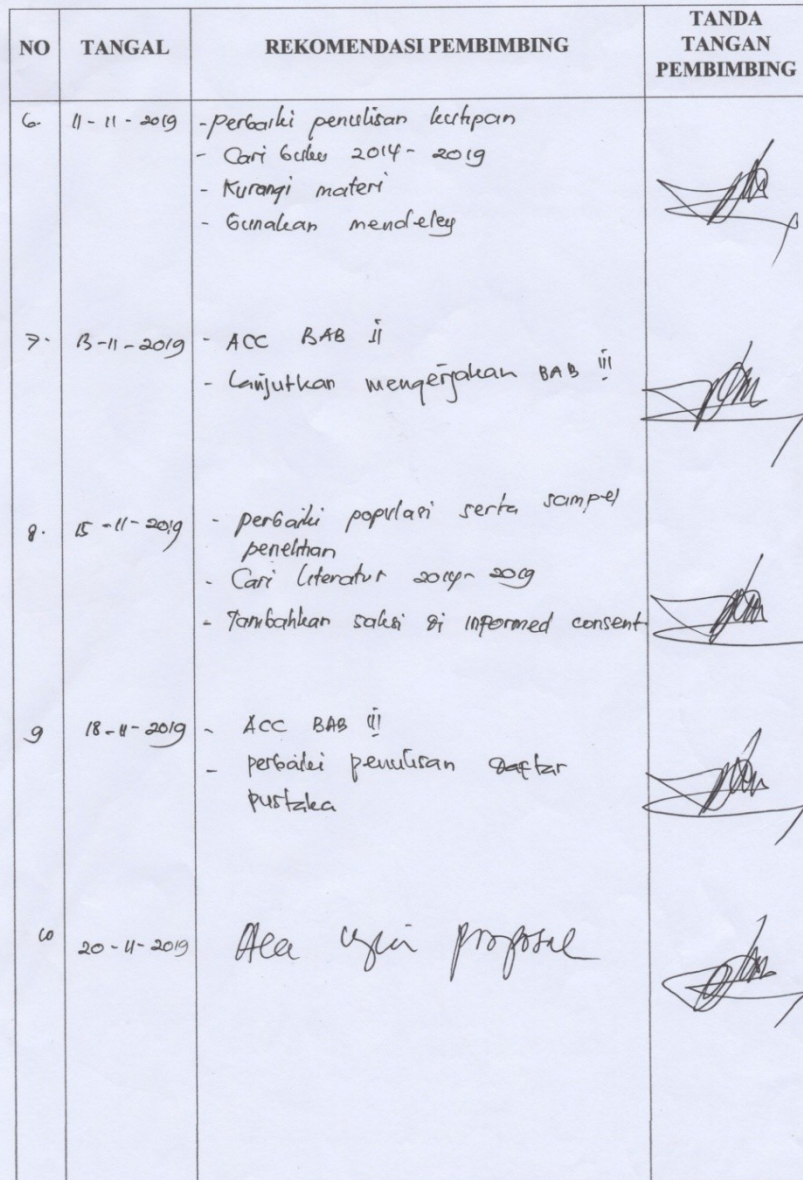 NO TANGAL REKOMENDASI PEMBIMBING TANDA TANGAN PEMBIMBING
6. 11-11-2019 - perbaiki penulisan kutipan
- Cari buku 2014-2019
- Kurangi materi
- Gunakan mendeley
7. 13-11-2019 - ACC BAB II
- Lanjutkan mengerjakan BAB III
8. 15-11-2019 - perbaiki populasi serta sampel
penelitian
- Cari literatur 2014-2019
- Tambahkan saksi di informed consent
9 18-11-2019 - ACC BAB III
- perbaiki penulisan daftar
pustaka
10 20-11-2019 Acc ujian proposal